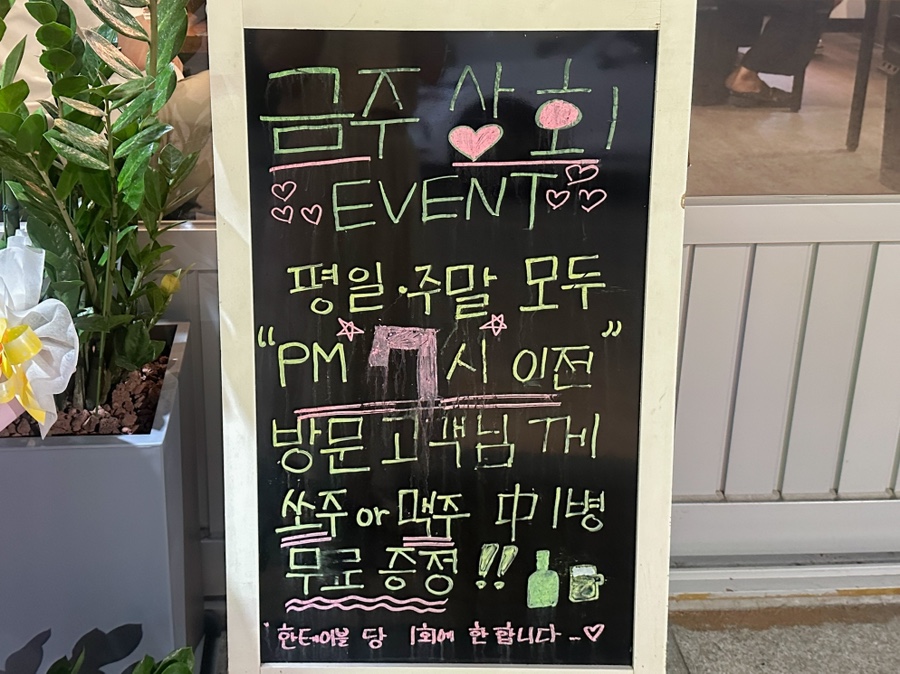 금주 사회
EVENT
평일·주말 모두
“PM 7시 이전”
방문 고객님 께
쏘주 or 맥주 中 1병
무료 증정!!
한테이블 당 1회에 한 합니다..♡